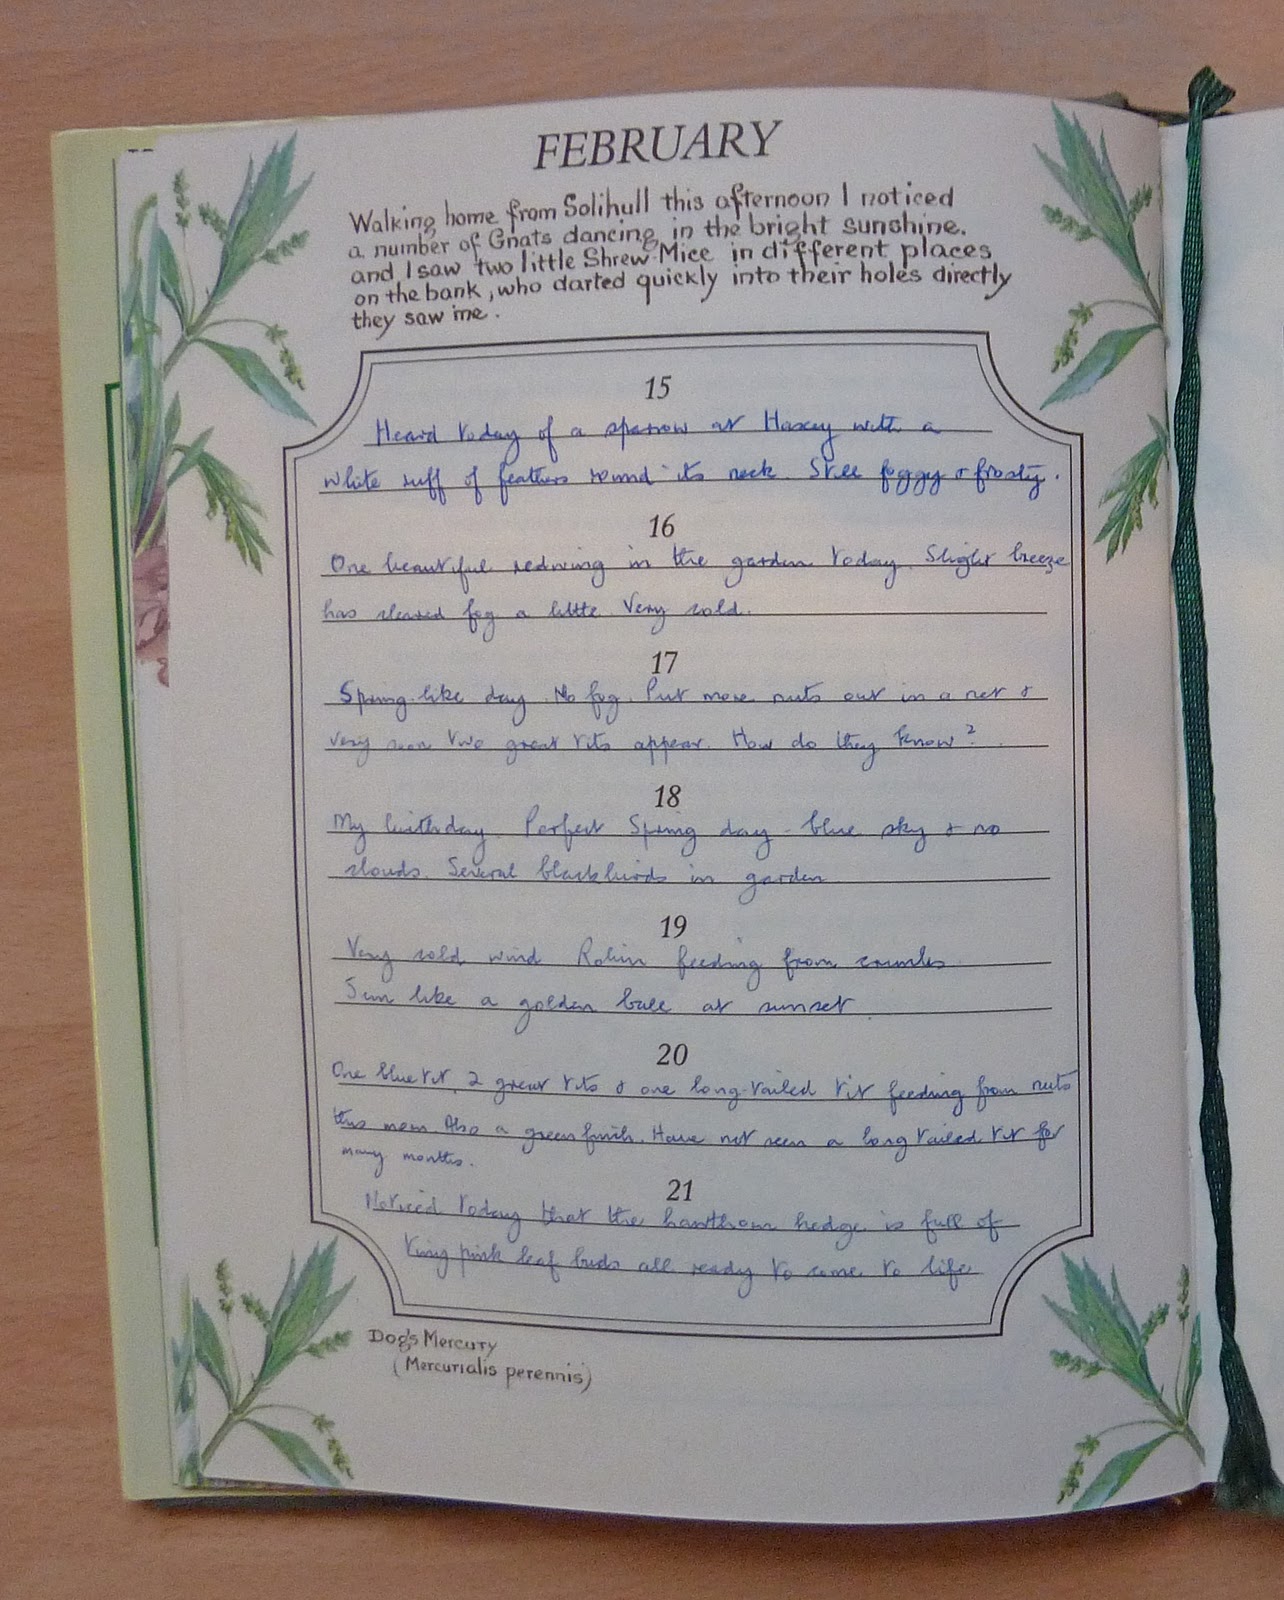 FEBRUARY
Walking home from Solihull this afternoon I noticed
a number of Gnats dancing in the bright sunshine.
and I saw two little Shrew-Mice in different places
on the bank, who darted quickly into their holes directly
they saw me.
15
Heard today of a sparrow at Haxey with a
white ruff of feathers round its neck Still foggy & frosty.
16
One beautiful redwing in the garden today. Slight breeze
has cleared fog a little. Very cold.
17
Spring-like day. No fog. Put more nuts out in a net &
very soon two great tits appear. How do they know?
18
My birthday. Perfect Spring day - blue sky & no
clouds. Several blackbirds in garden
19
Very cold wind Robin feeding from crumbs
Sun like a golden ball at sunset.
20
One blue tit, 2 great tits & one long-tailed tit feeding from nuts
this morn. Also a greenfinch. Have not seen a long tailed tit for
many months.
21
Noticed today that the hawthorn hedge is full of
tiny pink leaf buds all ready to come to life
Dog's Mercury
(Mercurialis perennis)